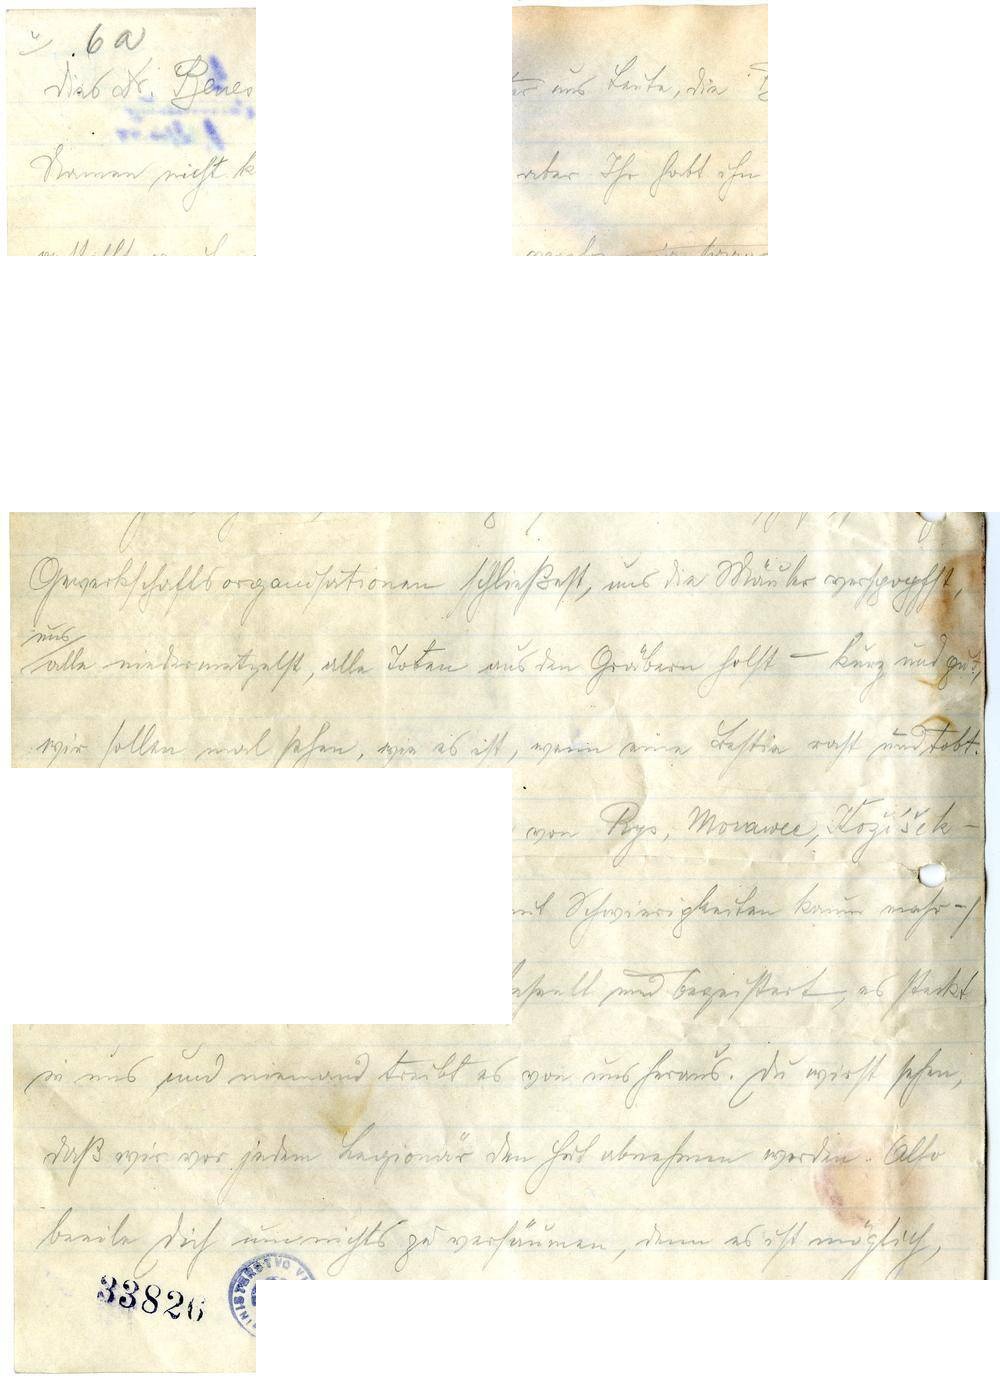 6a
Dies Dr. Benes
uns Leute, die
Namen nicht
aber Ihr habt ihn
Gewerkschaftsorganisationen schließest, uns die Mäuler verstopfst,
uns
alle niedermetzelst, alle Toten aus den Gräbern holst — kurz und gut,
wir sollen mal sehen, wie es ist, wenn eine Bestie rast und tobt.
von Rys, Morawec, Kožíšek —
mit Schwierigkeiten kaum mehr —
beseelt und begeistert, es steckt
in uns und niemand treibt es von uns heraus. Du wirst sehen,
daß wir vor jedem Legionär den Hut abnehmen werden. Also
beeile Dich um nichts zu versäumen, denn es ist möglich,
33826